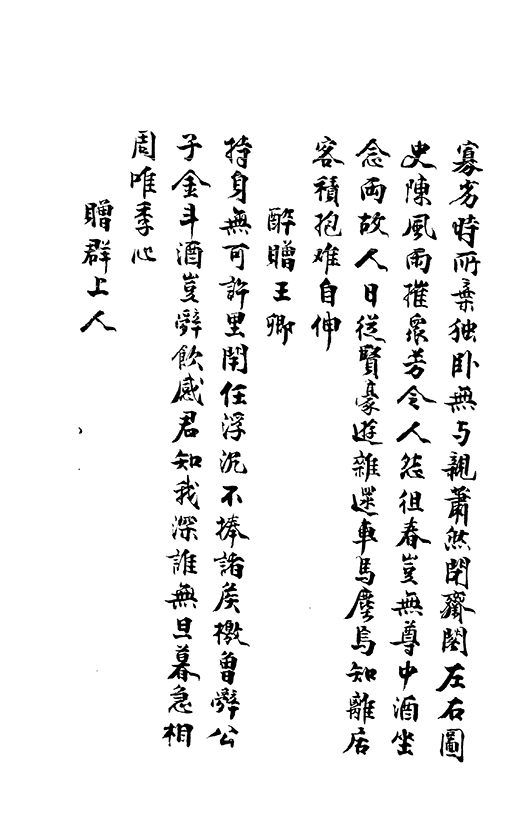 寡劣時所棄独卧無与親蕭然閉齋閣左右圖
史陳風雨摧衆芳令人怨徂春豈無尊中酒坐
念兩故人日從賢豪遊雜遝車馬塵烏知離居
客積抱难自伸
醉贈王卿
持身無可許里閈任浮沉不捧諸矦檄曾辤公
子金斗酒豈辤飲感君知我深誰無旦暮急相
周唯季心
贈群上人